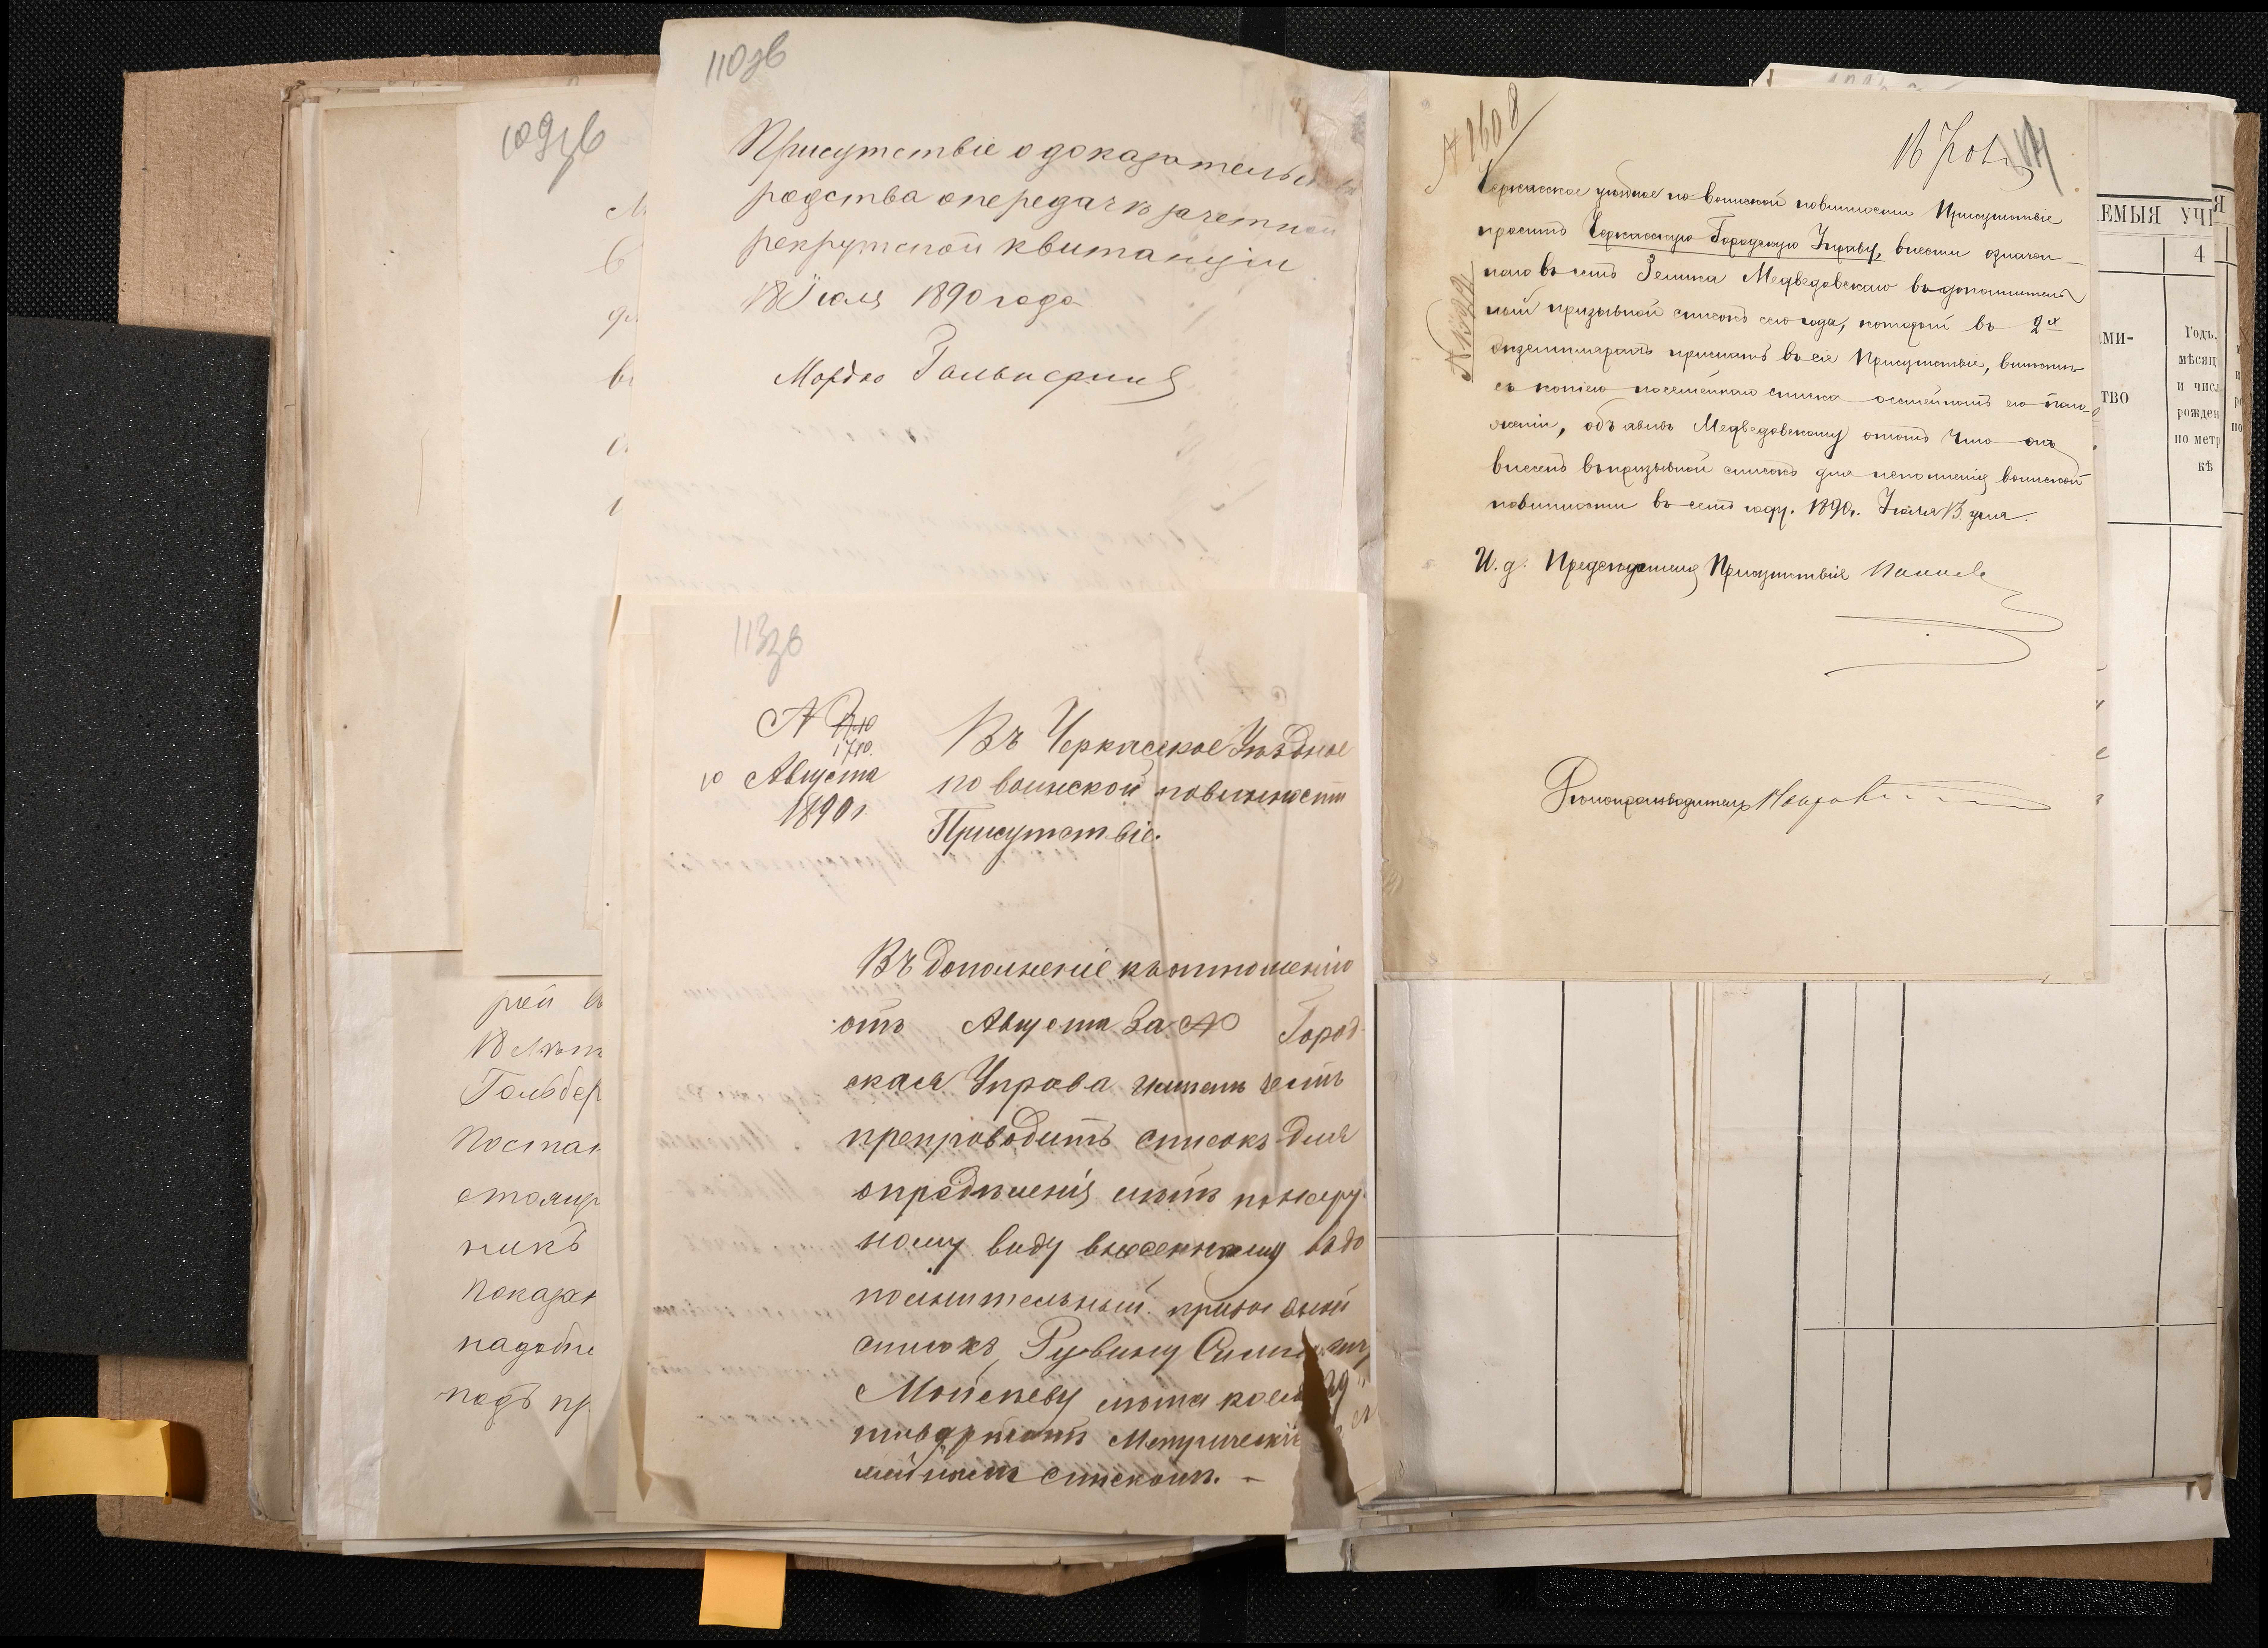 109зв
110зв
Присутствіе о доказательс
родства о передачѣ зачетной
рекрутской квитанціи
18 Іюля 1890 года
Мордко Гальперинъ
рей
18 лѣтъ
Гольбер
Постан
никъ
Показан
надобно
подъ пр
113зв
№ 1710
1710.
10 Августа
1890 г.
Въ Черкасское Уѣздное
по воинской повинности
Присутствіе.
Въ дополненіе къ отношенію
отъ Августа за № Город-
ская Управа имѣетъ честь
препроводить списокъ для
опредѣленія лѣтъ по наруж-
ному виду внесенному въ до
полнительный призывной
списокъ, Рувину
Мойсееву лѣта коего
списками. –
№ 1608
18 Іюля
114
№ 1344
Черкасское уѣздное по воинской повинности Присутствіе
проситъ Черкасскую Городскую Управу, внести означен-
наго въ семъ Зелика Медведовскаго въ дополнитель
ный призывной списокъ сего года, который въ 2х
экземплярахъ прислать въ сіе Присутствіе, вмѣстѣ
съ копіею посемейнаго списка о семейномъ его поло-
женіи, объявивъ Медведовскому о томъ что онъ
внесенъ въ призывной списокъ для исполненія воинской
повинности въ семъ году. 1890 г. Іюля 13 дня.
И. д. Предсѣдателя Присутствія
Дѣлопроизводитель
ЕМЫЯ УЧ
Я
4
МИ-
ТВО
Годъ,
мѣсяц
и чис
рожден
по метр
кѣ